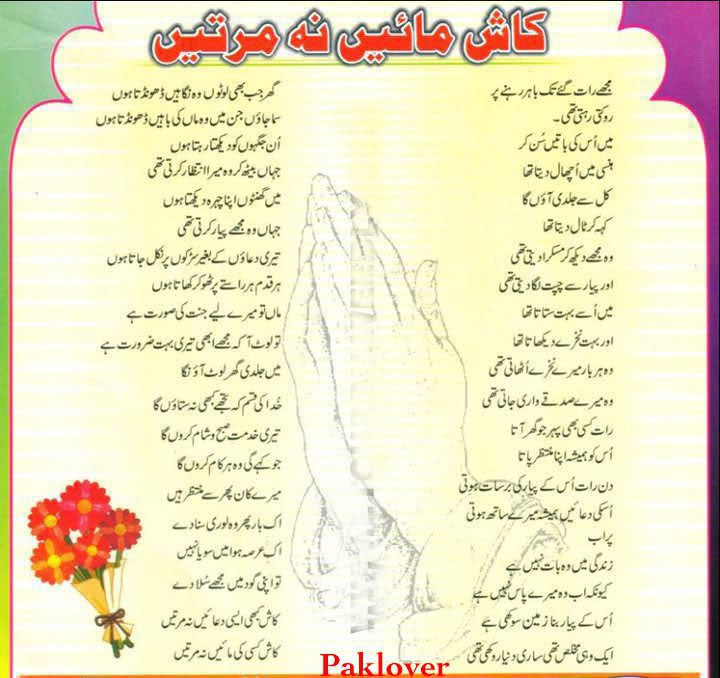 کاش مائیں نہ مرتیں
مجھے رات گئے تک باہر رہنے پر
روکتی رہتی تھی۔
میں اُس کی باتیں سُن کر
ہنسی میں اُچھال دیتا تھا
کل سے جلدی آؤں گا
کہہ کر ٹال دیتا تھا
وہ مجھے دیکھ کر مسکرا دیتی تھی
اور پیار سے چپت لگا دیتی تھی
میں اُسے بہت ستاتا تھا
اور بہت نخرے دیکھاتا تھا
وہ ہر بار میرے نخرے اُٹھاتی تھی
وہ میرے صدقے واری جاتی تھی
رات کسی بھی پہر جو گھر آتا
اُس کو ہمیشہ اپنا منتظر پاتا
دن رات اُس کے پیار کی برسات ہوتی
اُسکی دعائیں ہمیشہ میرے ساتھ ہوتی
پر اب
زندگی میں وہ بات نہیں ہے
کیونکہ اب وہ میرے پاس نہیں ہے
اُس کے پیار بنا زمین سوکھی ہے
ایک وہی مخلص تھی ساری دنیا روکھی تھی
گھر جب بھی لوٹوں وہ نگاہیں ڈھونڈتا ہوں
سما جاؤں جن میں وہ ماں کی باہیں ڈھونڈتا ہوں
اُن جگہوں کو دیکھتا رہتا ہوں
جہاں بیٹھ کر وہ میرا انتظار کرتی تھی
میں گھنٹوں اپنا چہرہ دیکھتا ہوں
جہاں وہ مجھے پیار کرتی تھی
تیری دعاؤں کے بغیر سڑکوں پر نکل جاتا ہوں
ہر قدم ہر راستے پر ٹھوکر کھاتا ہوں
ماں تو میرے لیے جنت کی صورت ہے
تو لوٹ آ کہ مجھے ابھی تیری بہت ضرورت ہے
میں جلدی گھر لوٹ آؤنگا
خُدا کی قسم کہ تجھے کبھی نہ ستاؤں گا
تیری خدمت صبح و شام کروں گا
جو کہے گی وہ ہر کام کروں گا
میرے کان پھر سے منتظر ہیں
اک بار پھر وہ لوری سنا دے
اک عرصہ ہوا میں سویا نہیں
تو اپنی گود میں مجھے سُلا دے
کاش کبھی ایسی دعائیں نہ مرتیں
کاش کسی کی مائیں نہ مرتیں
Paklover